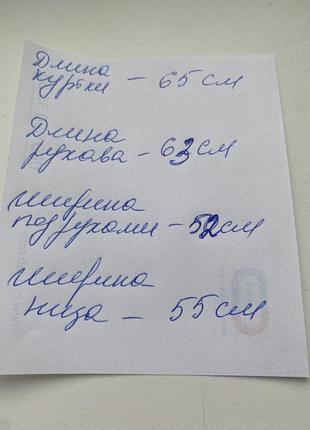 Длина
куртки - 65 см
Длина
рукава - 63 см
ширина
под руками - 52 см
ширина
низа - 55 см